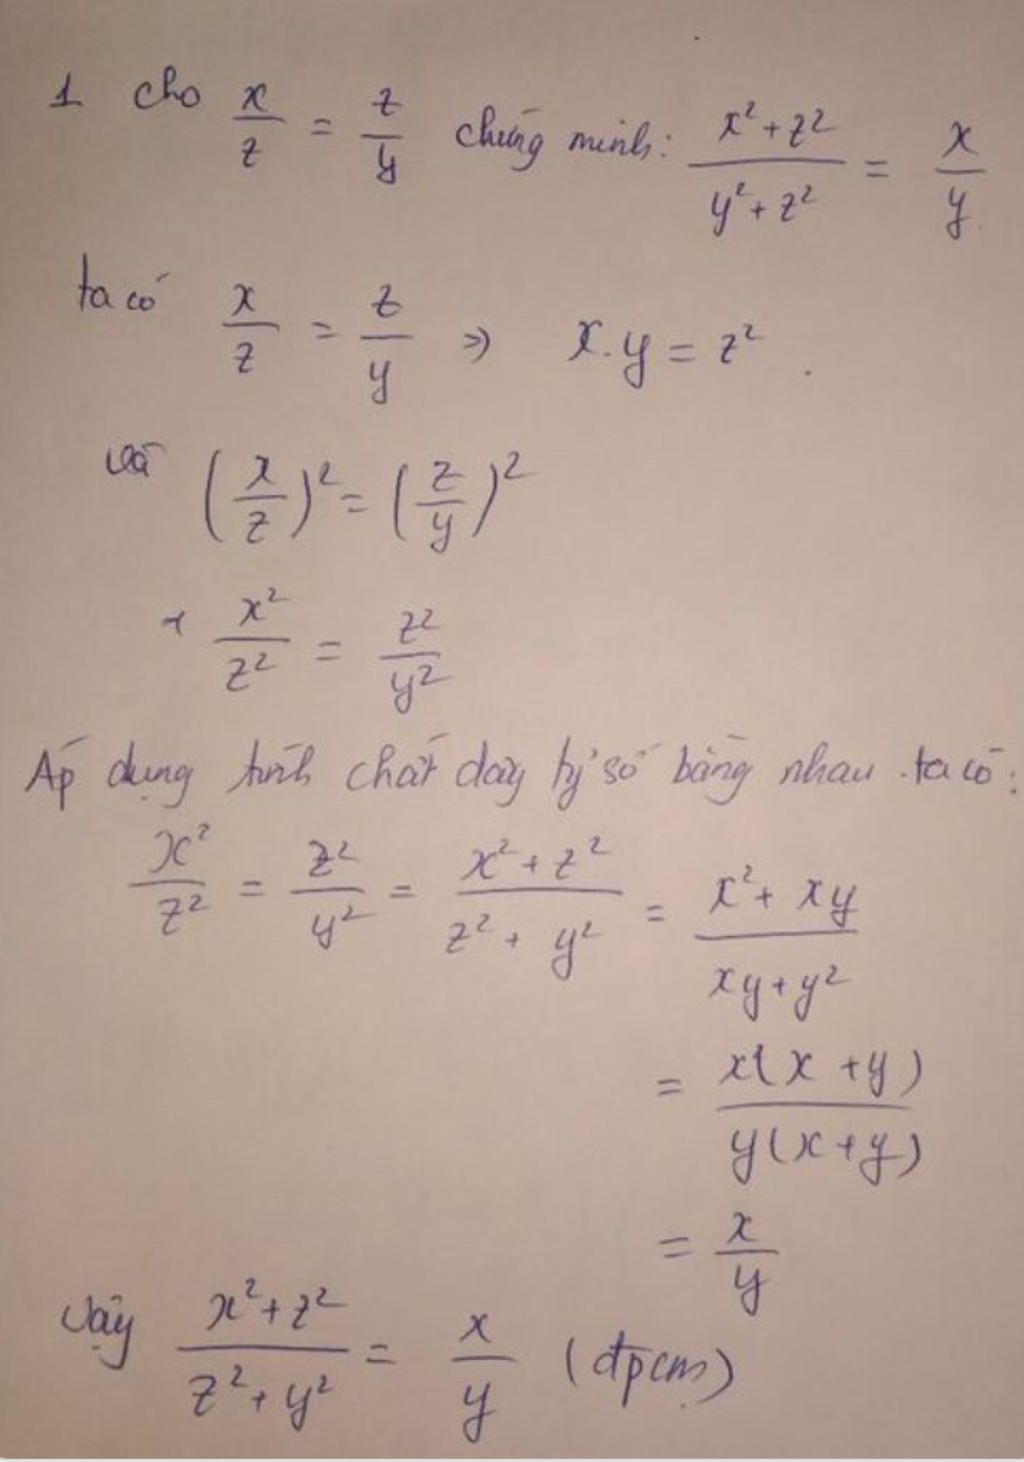 1 cho x/z = z/y chứng minh: (x² + z²)/(y² + z²) = x/y
ta có x/z = z/y => x.y = z².
và (x/z)² = (z/y)²
x²/z² = z²/y²
Áp dụng tính chất dãy tỷ số bằng nhau. ta có:
x²/z² = z²/y² = (x² + z²)/(z² + y²) = (x² + xy)/(xy + y²)
= x(x + y)/y(x + y)
= x/y
Vậy (x² + z²)/(z² + y²) = x/y (đpcm)